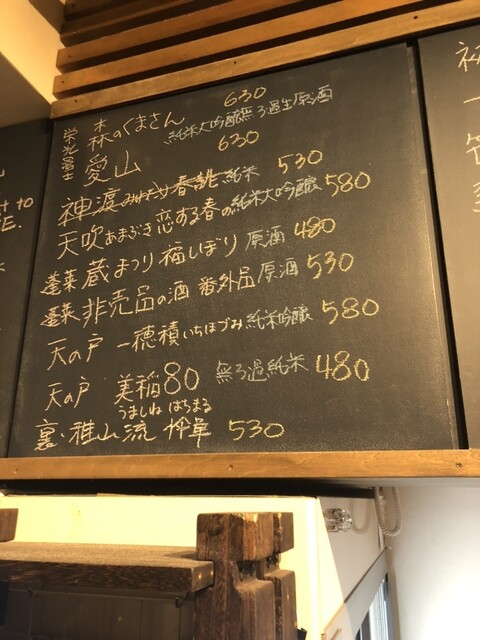 森のくまさん 630
純米大吟醸無ろ過生原酒
愛山 630
神渡みわたり春誂純米 530
天吹あまぶき恋する春の純米大吟醸 580
蓬莱 蔵まつり福しぼり原酒 480
蓬莱 非売品の酒 番外品原酒 530
天の戸 一穂積いちほづみ純米吟醸 580
天の戸 美稲80 無ろ過純米 480
うましね はちまる
裏・雅山流 530
t to
E.